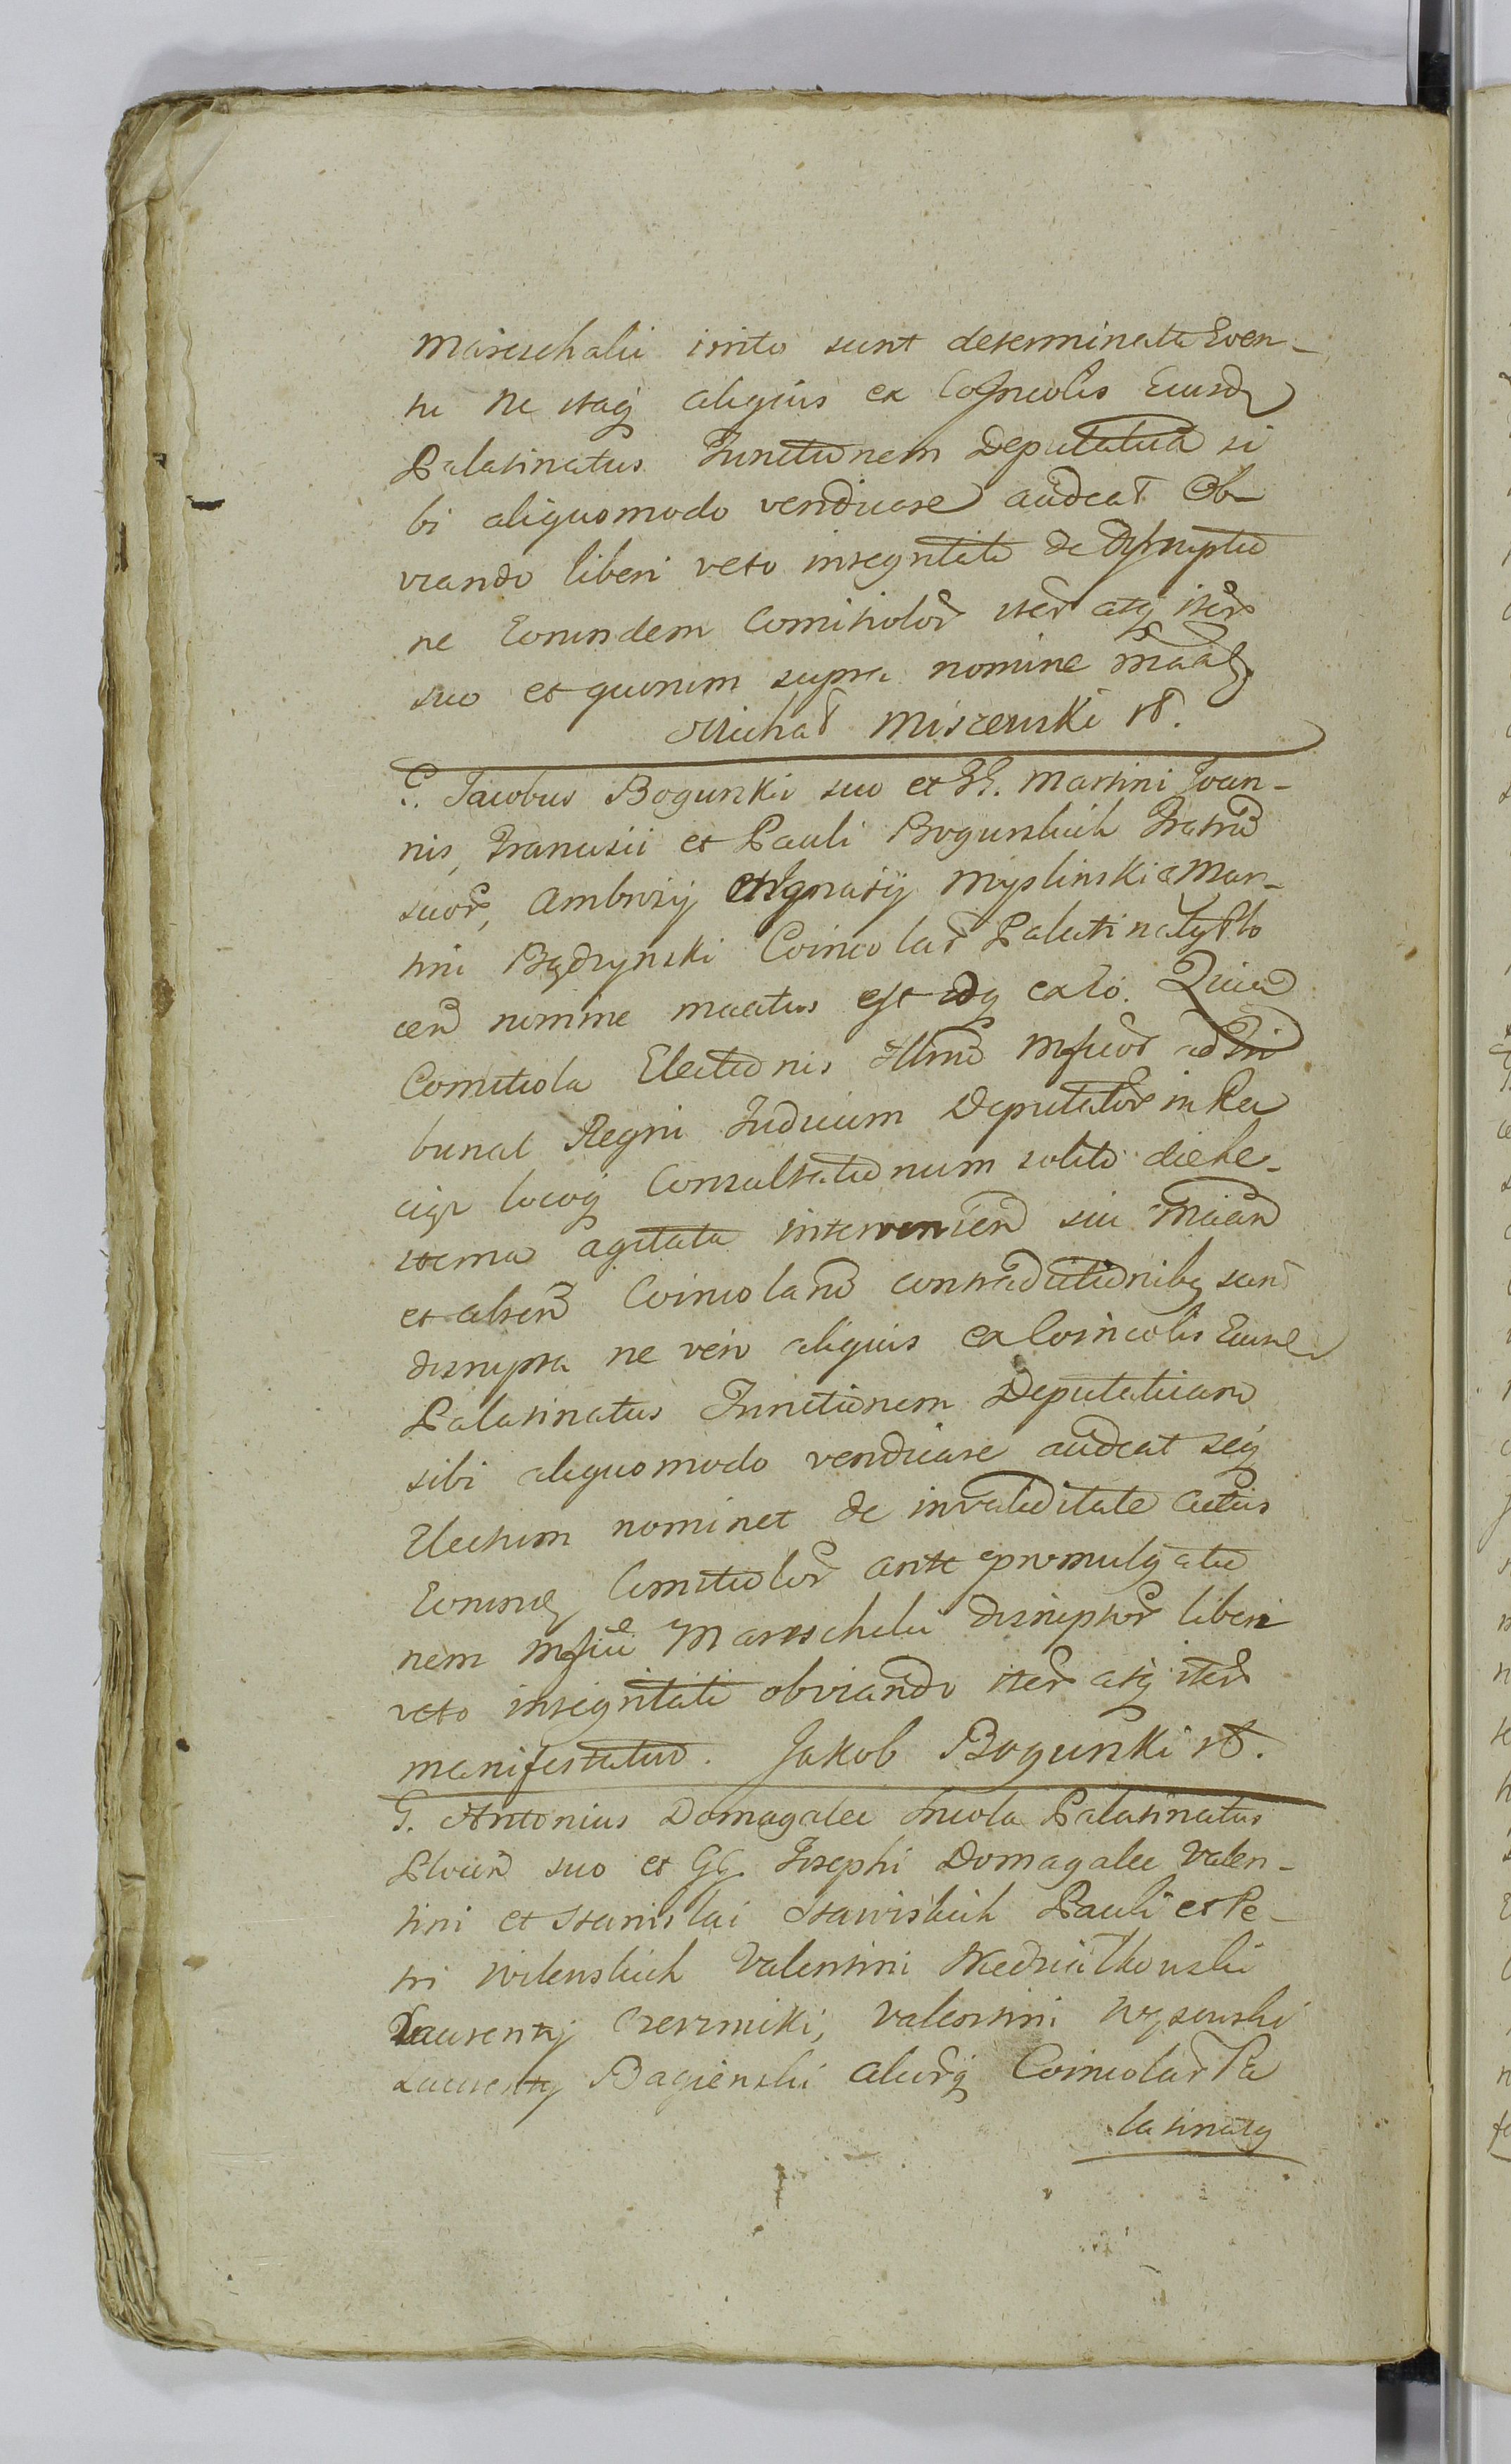 Mareschalii irrito sunt determinata Even-
tu Ne itaq aliquis ex CoIncolis Eiusd
Palatinatus Functionem Deputatua si
bi aliquomodo vendicare audeat Ob-
viando liberi veto integritati de disruptio
ne Eorundem Comitiolor iter atq iter
suo et quorum supra nomine
Michał Miszewski
G. Jacobus Bogurski suo et GG. Martini Joan-
nis, Francisii et Pauli Bogurskich Fratru
suor, Ambrosij et Ignatij Myslinski a Mar-
tini Bądzynski Coincolar Palatinatq Plo
cen nomine maatus est idq ex eo. Quia
Comitiola Electionis Illmo Mficor ad Tri
bunal Regni Judicium Deputator in Ra
ciąż locoq Consultationum solito die he-
sterna agitata intervenien sui
et absen Coincolaru contradictionibq sunt
disrupta ne vero aliquis ex Coincolis Eiusd
Palatinatus Functionem Deputatiam
sibi aliquomodo vendicare audeat seq
Electum nominet de invaliditate actus
Eorund Comitiolor ante promulgatio
nem Mfici Mareschalii disruptor liberi
veto integritati obviando iter atq iter
manifestatus. Jakob Bogurski
G. Antonius Domagalec Incola Palatinatus
Plocen suo et GG. Josephi Domagalec Valen-
tini et Stanislai Stawiskich Pauli et Pe-
tri Wilenskich Valentini Niedziałkowski
Laurentij Czerniki, Valentini Wysouski
Laurentij Bagienski alior q Coincolar Pa
latinatq